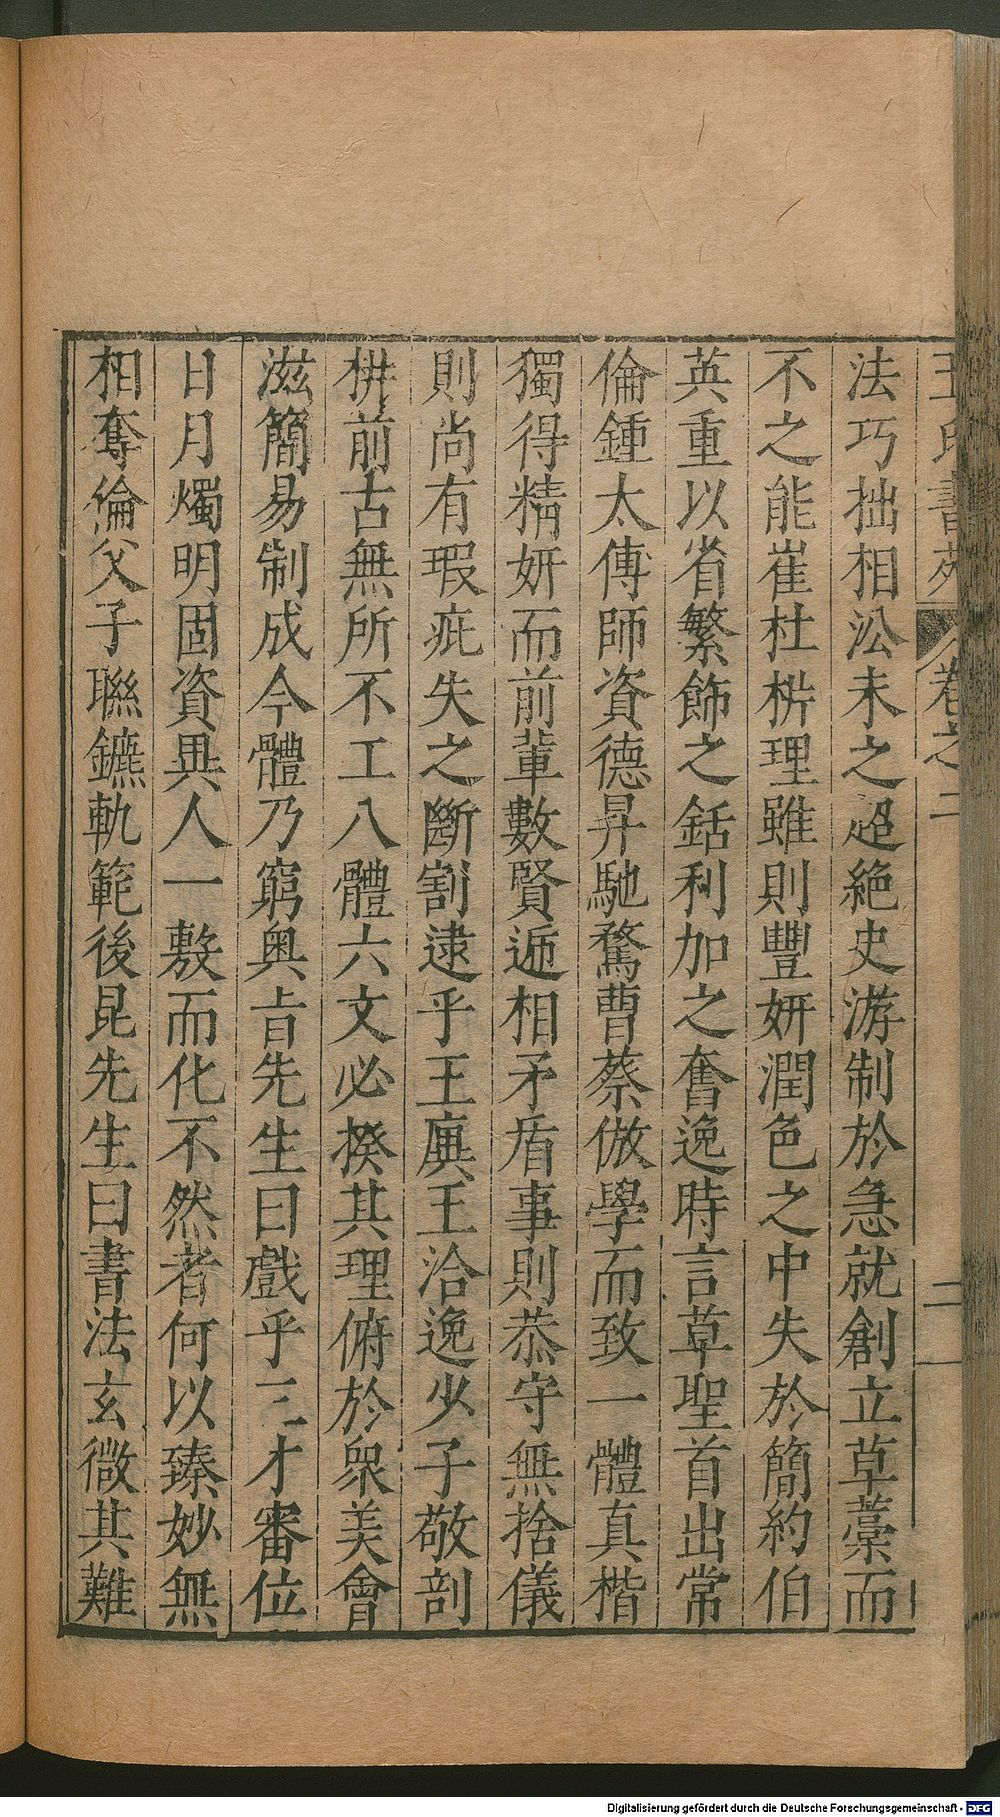 王氏書苑 卷之二 二
法巧拙相沿未之超絶史游制於急就創立草藁而
不之能崔杜枡理雖則豐妍潤色之中失於簡約伯
英重以省繁飾之銛利加之奮逸時言草聖首出常
倫鍾太傅師資德昇馳騖曹蔡倣學而致一體真楷
獨得精妍而前輩數賢遞相矛盾事則恭守無捨儀
則尚有瑕疵失之斷割逮乎王廙王洽逸少子敬剖
枡前古無所不工八體六文必揆其理俯於衆美會
滋簡易制成今體乃窮奧旨先生曰戲乎三才審位
日月燭明固資異人一敷而化不然者何以臻妙無
相奪倫父子聯鑣軌範後昆先生曰書法玄微其難
Digitalisierung gefördert durch die Deutsche Forschungsgemeinschaft - DFG